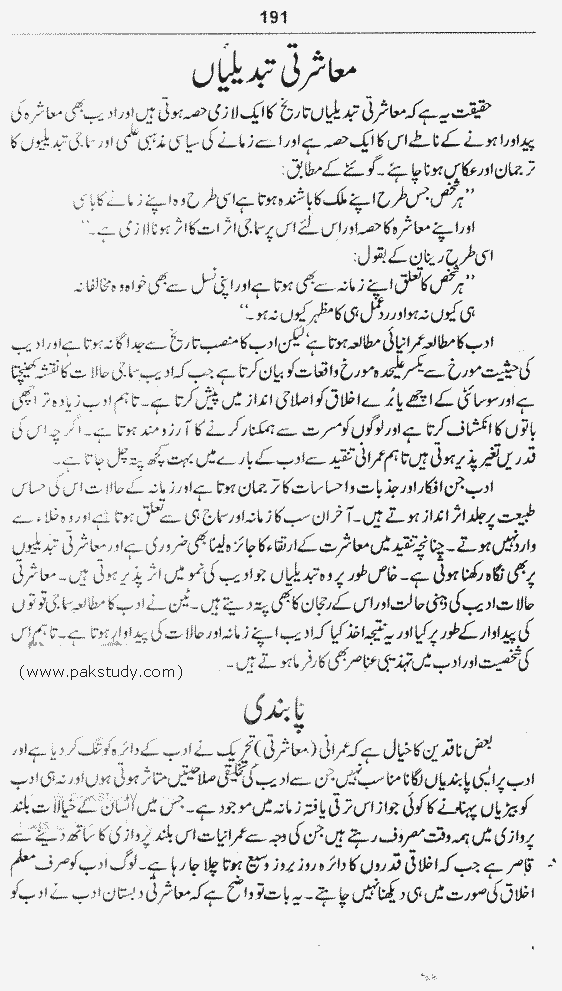 191
معاشرتی تبدیلیاں
حقیقت یہ ہے کہ معاشرتی تبدیلیاں تاریخ کا ایک لازمی حصہ ہوتی ہیں اور ادیب بھی معاشرہ کی
پیداوار ہونے کے ناطے اس کا ایک حصہ ہے اور اسے زمانے کی سیاسی مذہبی علمی اور سماجی تبدیلیوں کا
ترجمان اور عکاس ہونا چاہئے۔ گوئٹے کے مطابق:
’’ہر شخص جس طرح اپنے ملک کا باشندہ ہوتا ہے اسی طرح وہ اپنے زمانے کا باسی
اور اپنے معاشرہ کا حصہ اور اس لئے اس پر سماجی اثرات کا اثر ہونا لازمی ہے۔‘‘
اسی طرح رینان کے بقول:
’’ہر شخص کا تعلق اپنے زمانہ سے بھی ہوتا ہے اور اپنی نسل سے بھی خواہ وہ مخالفانہ
ہی کیوں نہ ہو اور ردعمل ہی کا مظہر کیوں نہ ہو۔‘‘
ادب کا مطالعہ عمرانیاتی مطالعہ ہوتا ہے لیکن ادب کا منصب تاریخ سے جداگانہ ہوتا ہے اور ادیب
کی حیثیت مورخ سے یکسر علیحدہ مورخ واقعات کو بیان کرتا ہے جب کہ ادیب سماجی حالات کا نقشہ کھینچتا
ہے اور سوسائٹی کے اچھے یا برے اخلاق کو اصلاحی انداز میں پیش کرتا ہے۔ تاہم ادب زیادہ تر اچھی
باتوں کا انکشاف کرتا ہے اور لوگوں کو مسرت سے ہمکنار کرنے کا آرزو مند ہوتا ہے۔ اگرچہ اس کی
قدریں تغیر پذیر ہوتی ہیں تاہم عمرانی تنقید سے ادب کے بارے میں بہت کچھ پتہ چل جاتا ہے۔
ادب جن افکار اور جذبات و احساسات کا ترجمان ہوتا ہے اور زمانہ کے حالات اس کی حساس
طبیعت پر جلد اثر انداز ہوتے ہیں۔ آخر ان سب کا زمانہ اور سماج ہی سے تعلق ہوتا ہے اور وہ خلاء سے
وارد نہیں ہوتے۔ چنانچہ تنقید میں معاشرت کے ارتقاء کا جائزہ لینا بھی ضروری ہے اور معاشرتی تبدیلیوں
پر بھی نگاہ رکھنا ہوتی ہے۔ خاص طور پر وہ تبدیلیاں جو ادیب کی نمو میں اثر پذیر ہوتی ہیں۔ معاشرتی
حالات ادیب کی ذہنی حالت اور اس کے رجحان کا بھی پتہ دیتے ہیں۔ ٹین نے ادب کا مطالعہ سماجی قوتوں
کی پیداوار کے طور پر کیا اور یہ نتیجہ اخذ کیا کہ ادیب اپنے زمانہ اور حالات کی پیداوار ہوتا ہے۔ تاہم اس
کی شخصیت اور ادب میں تہذیبی عناصر بھی کارفرما ہوتے ہیں۔
(www.pakstudy.com)
پابندی
بعض ناقدین کا خیال ہے کہ عمرانی (معاشرتی) تحریک نے ادب کے دائرہ کو تنگ کر دیا ہے اور
ادب پر ایسی پابندیاں لگانا مناسب نہیں جن سے ادیب کی تخلیقی صلاحیتیں متاثر ہوتی ہوں اور نہ ہی ادب
کو بیڑیاں پہنانے کا کوئی جواز اس ترقی یافتہ زمانہ میں موجود ہے۔ جس میں انسان کے خیالات بلند
پروازی میں ہمہ وقت مصروف رہتے ہیں جن کی وجہ سے عمرانیات اس بلند پروازی کا ساتھ دینے سے
قاصر ہے جب کہ اخلاقی قدروں کا دائرہ روز بروز وسیع ہوتا چلا جا رہا ہے۔ لوگ ادب کو صرف معلم
اخلاق کی صورت میں ہی دیکھنا نہیں چاہتے۔ یہ بات تو واضح ہے کہ معاشرتی دبستان ادب نے ادب کو